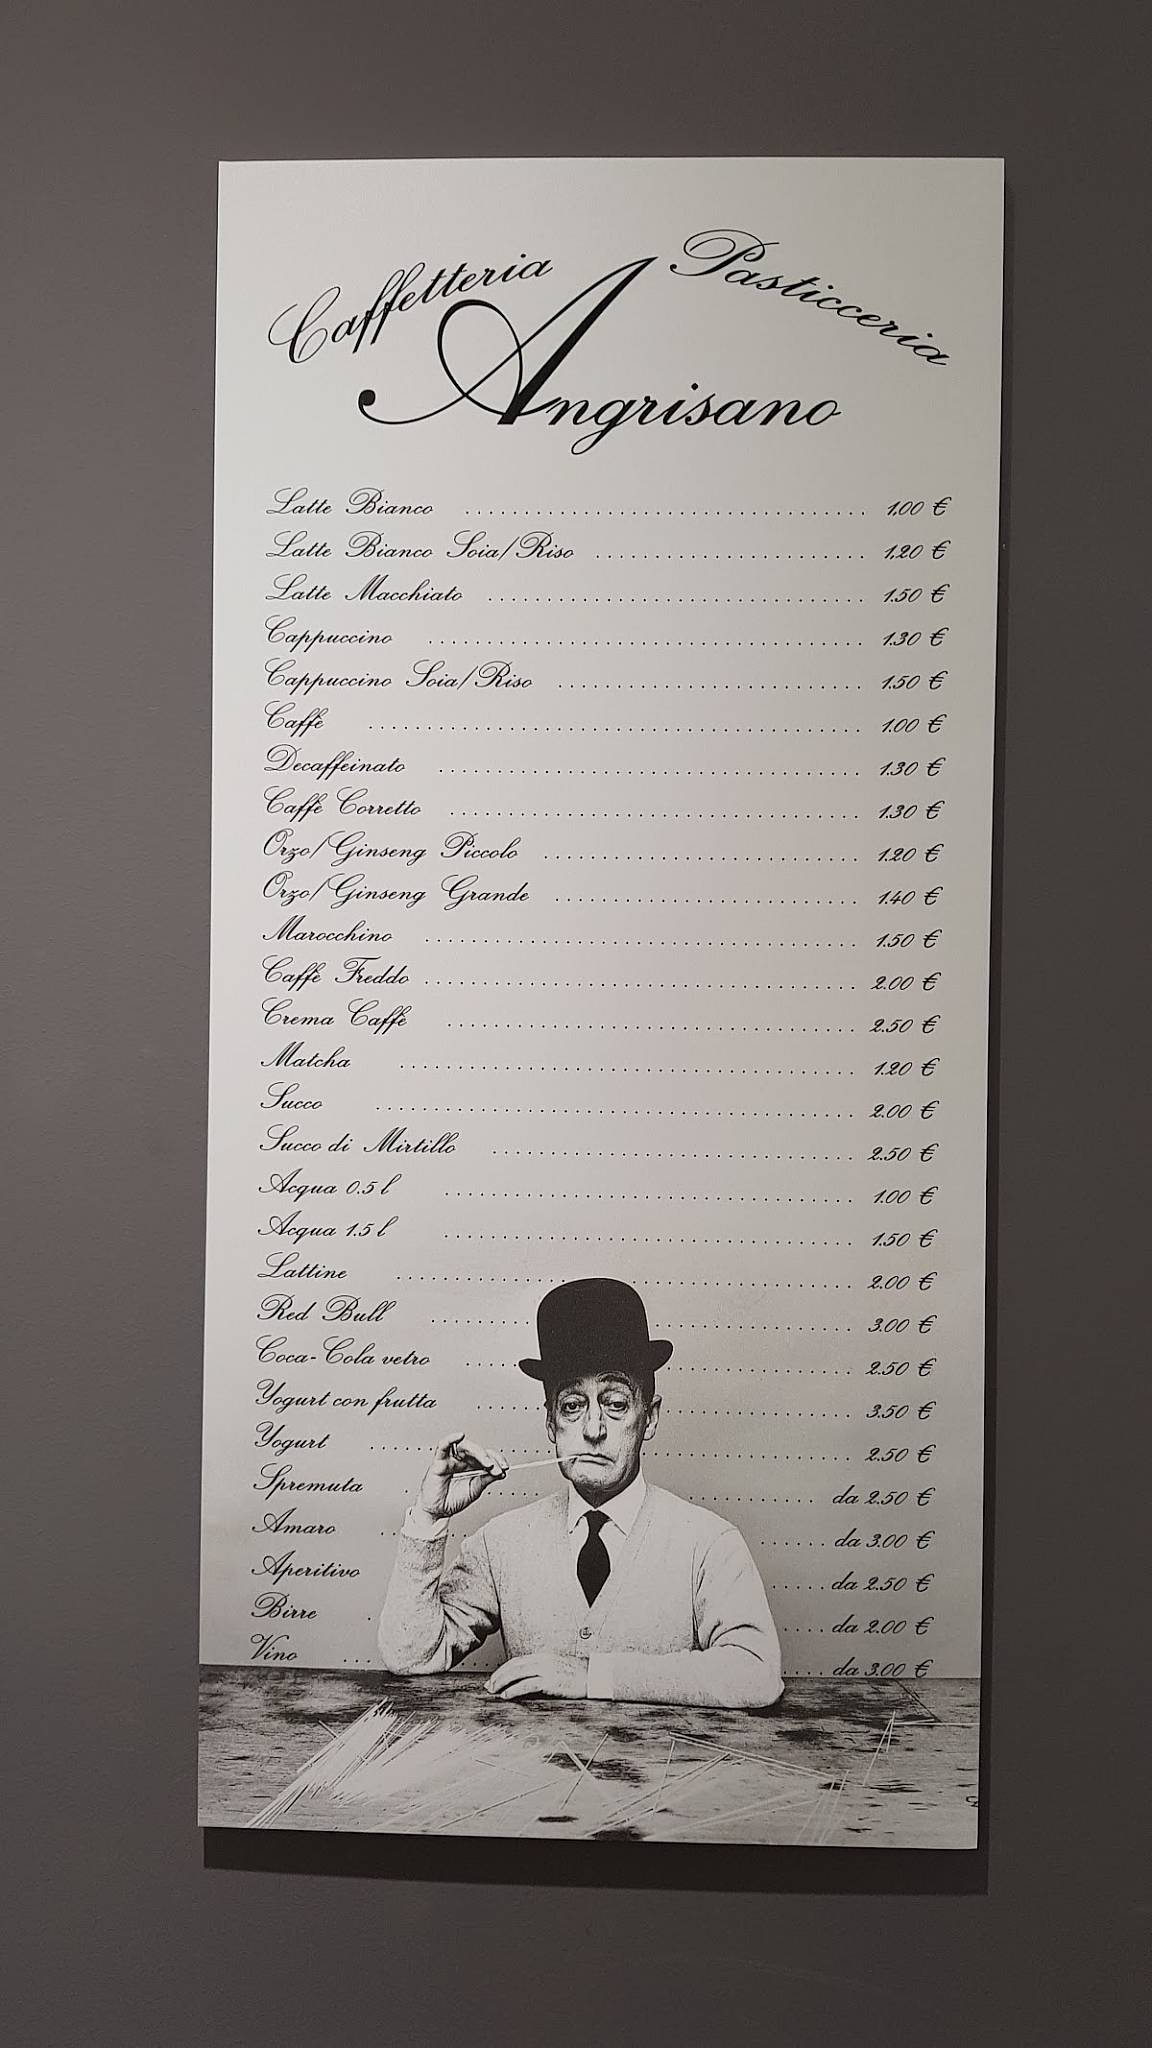 Caffetteria Pasticceria
Angrisano
Latte Bianco ........ 1.00 €
Latte Bianco Soia/Riso ........ 1.20 €
Latte Macchiato ........ 1.50 €
Cappuccino ........ 1.30 €
Cappuccino Soia/Riso ........ 1.50 €
Caffè ........ 1.00 €
Decaffeinato ........ 1.30 €
Caffè Corretto ........ 1.30 €
Orzo/Ginseng Piccolo ........ 1.20 €
Orzo/Ginseng Grande ........ 1.40 €
Marocchino ........ 1.50 €
Caffè Freddo ........ 2.00 €
Crema Caffè ........ 2.50 €
Matcha ........ 1.20 €
Succo ........ 2.00 €
Succo di Mirtillo ........ 2.50 €
Acqua 0.5 l ........ 1.00 €
Acqua 1.5 l ........ 1.50 €
Lattine ........ 2.00 €
Red Bull ........ 3.00 €
Coca-Cola vetro ........ 2.50 €
Yogurt con frutta ........ 3.50 €
Yogurt ........ 2.50 €
Spremuta ........ da 2.50 €
Amaro ........ da 3.00 €
Aperitivo ........ da 2.50 €
Birre ........ da 2.00 €
Vino ........ da 3.00 €